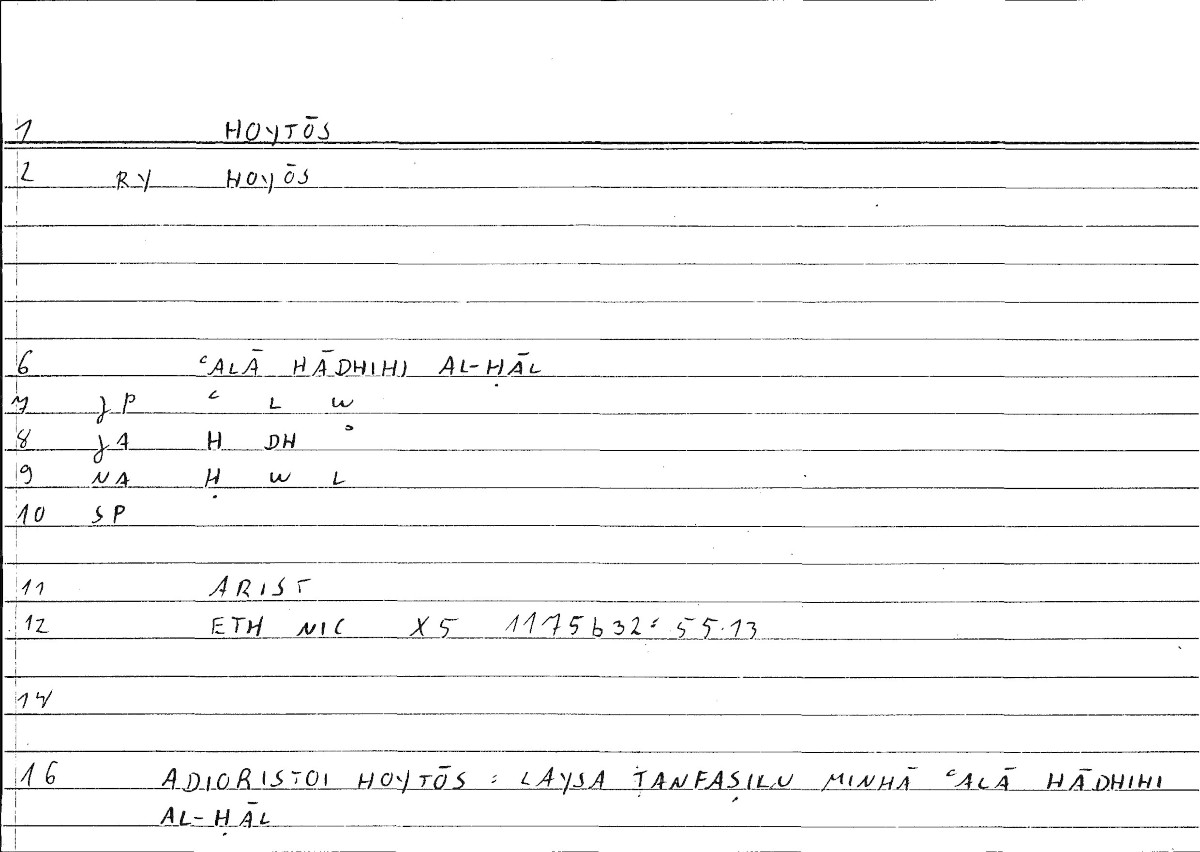 1 HOYTŌS
2 RY HOYŌS
6 ʿALĀ HĀDHIHI AL-ḤĀL
7 JP ʿ L W
8 JA H DH °
9 NA Ḥ W L
10 SP
11 ARIST
12 ETH NIC X5 1175b32: 55.13
14
16 ADIORISTOI HOYTŌS : LAYSA ṬANFAṢILU MINHĀ ʿALĀ HĀDHIHI
AL-ḤĀL